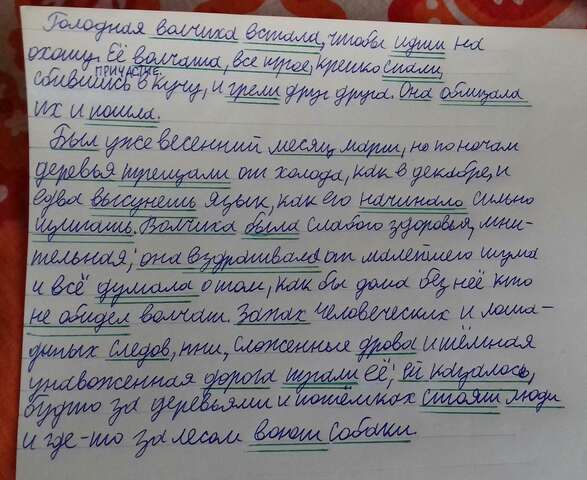 Голодная волчиха встала, чтобы идти на
охоту. Её волчата, все трое, крепко спали,
ПРИЧАСТИЕ
сбившись в кучу, и грели друг друга. Она облизала
их и пошла.
Был уже весенний месяц март, но по ночам
деревья трещали от холода, как в декабре, и
едва высунешь язык, как его начинало сильно
щипать. Волчиха была слабого здоровья, мни-
тельная; она вздрагивала от малейшего шума
и всё думала о том, как бы дома без неё кто
не обидел волчат. Запах человеческих и лоша-
диных следов, пни, сложенные дрова и тёмная
унавоженная дорога пугали её; ей казалось,
будто за деревьями в потёмках стоят люди
и где-то за лесом воют собаки.